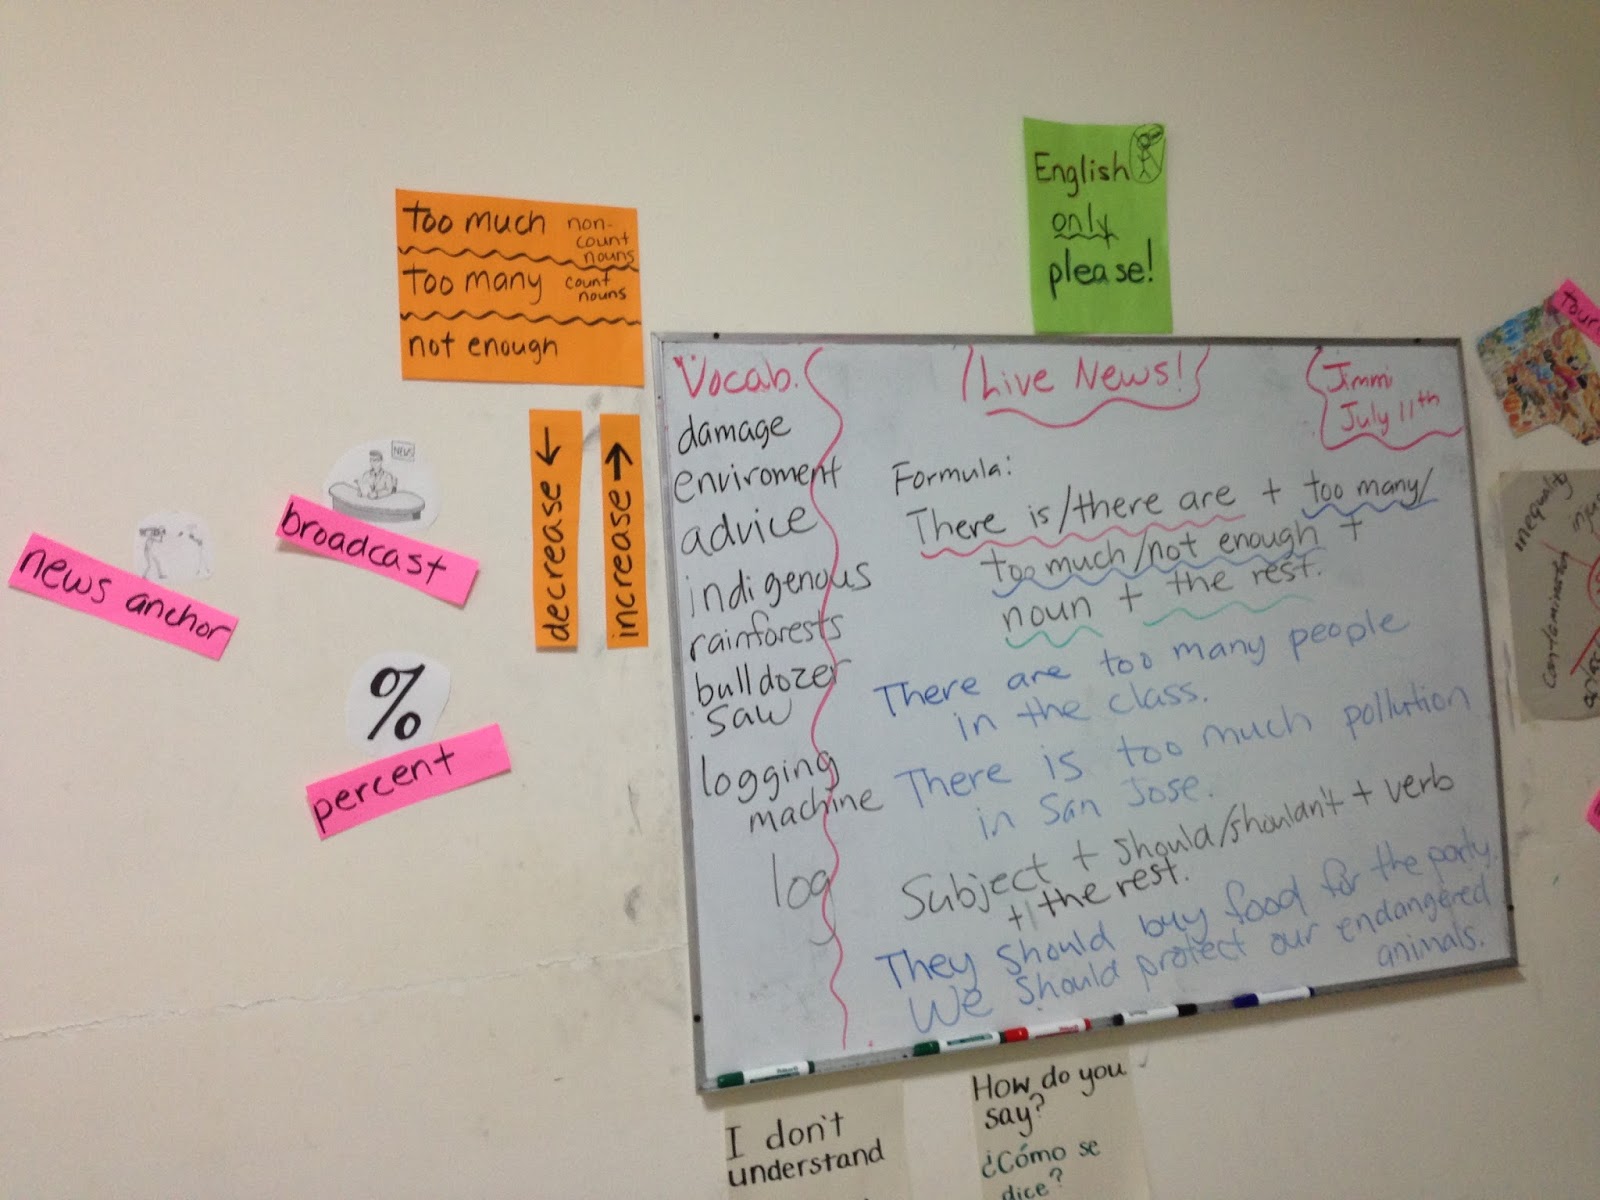 too much non-
count
nouns
too many count
nouns
not enough
English
only
please!
decrease
increase
NEWS
broadcast
news anchor
%
percent
Vocab.
damage
enviroment
advice
indigenous
rainforests
bulldozer
saw
logging
machine
log
Live News!
Jimmi
July 11th
Formula:
There is/there are + too many/
too much/not enough +
noun + the rest.
There are too many people
in the class.
There is too much pollution
in San Jose.
Subject + should/shouldn't + verb
+ the rest.
They should buy food for the party.
We should protect our endangered
animals.
I don't
understand
How do you
say?
¿Cómo se
dice?
inequality
contamination